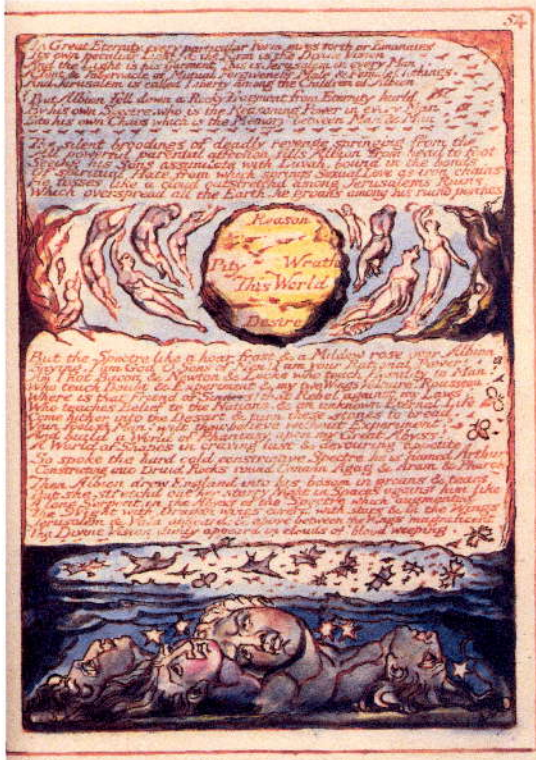 54
In Great Eternity, every particular Form gives forth or Emanates
Its own peculiar Light, & the Form is the Divine Vision
And the Light is his Garment This is Jerusalem in every Man
A Tent & Tabernacle of Mutual Forgiveness Male & Female Clothings.
And Jerusalem is called Liberty among the Children of Albion
But Albion fell down a Rocky fragment from Eternity hurld
By his own Spectre, who is the Reasoning Power in every Man
Into his own Chaos which is the Memory between Man & Man
The silent broodings of deadly revenge springing from the
All powerful parental affection, fills Albion from head to foot
Seeing his Sons assimilate with Luvah, bound in the bonds
Of spiritual Hate, from which springs Sexual Love as iron chains:
He tosses like a cloud outstretchd among Jerusalems Ruins
Which overspread all the Earth, he groans among his ruind porches
Reason
Pity Wrath
This World
Desire
But the Spectre like a hoar frost & a Mildew rose over Albion
Saying, I am God O Sons of Men! I am your Rational Power!
Am I not Bacon & Newton & Locke who teach Humility to Man!
Who teach Doubt & Experiment & my two Wings Voltaire: Rousseau.
Where is that Friend of Sinners! that Rebel against my Laws!
Who teaches Belief to the Nations, & an unknown Eternal Life
Come hither into the Desart & turn these stones to bread.
Vain foolish Man! wilt thou believe without Experiment?
And build a World of Phantasy upon my Great Abyss!
A World of Shapes in craving lust & devouring appetite
So spoke the hard cold constrictive Spectre he is named Arthur
Constricting into Druid Rocks round Canaan Agag & Aram & Pharoh
Then Albion drew England into his bosom in groans & tears
But she stretchd out her starry Night in Spaces against him. like
A long Serpent, in the Abyss of the Spectre which augmented
The Night with Dragon wings coverd with stars & in the Wings
Jerusalem & Vala appeard: & above between the Wings magnificent
The Divine Vision dimly appeard in clouds of blood weeping.